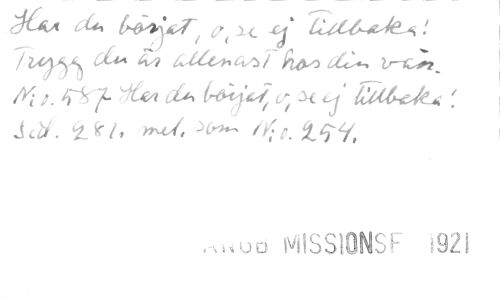 Har du börjat, o, se ej tillbaka!
Trygg du är allenast hos din vän.
N:o. 587 Har du börjat, o, se ej tillbaka!
Sid. 281. mel. som N:o. 254.
MISSIONSF 1921